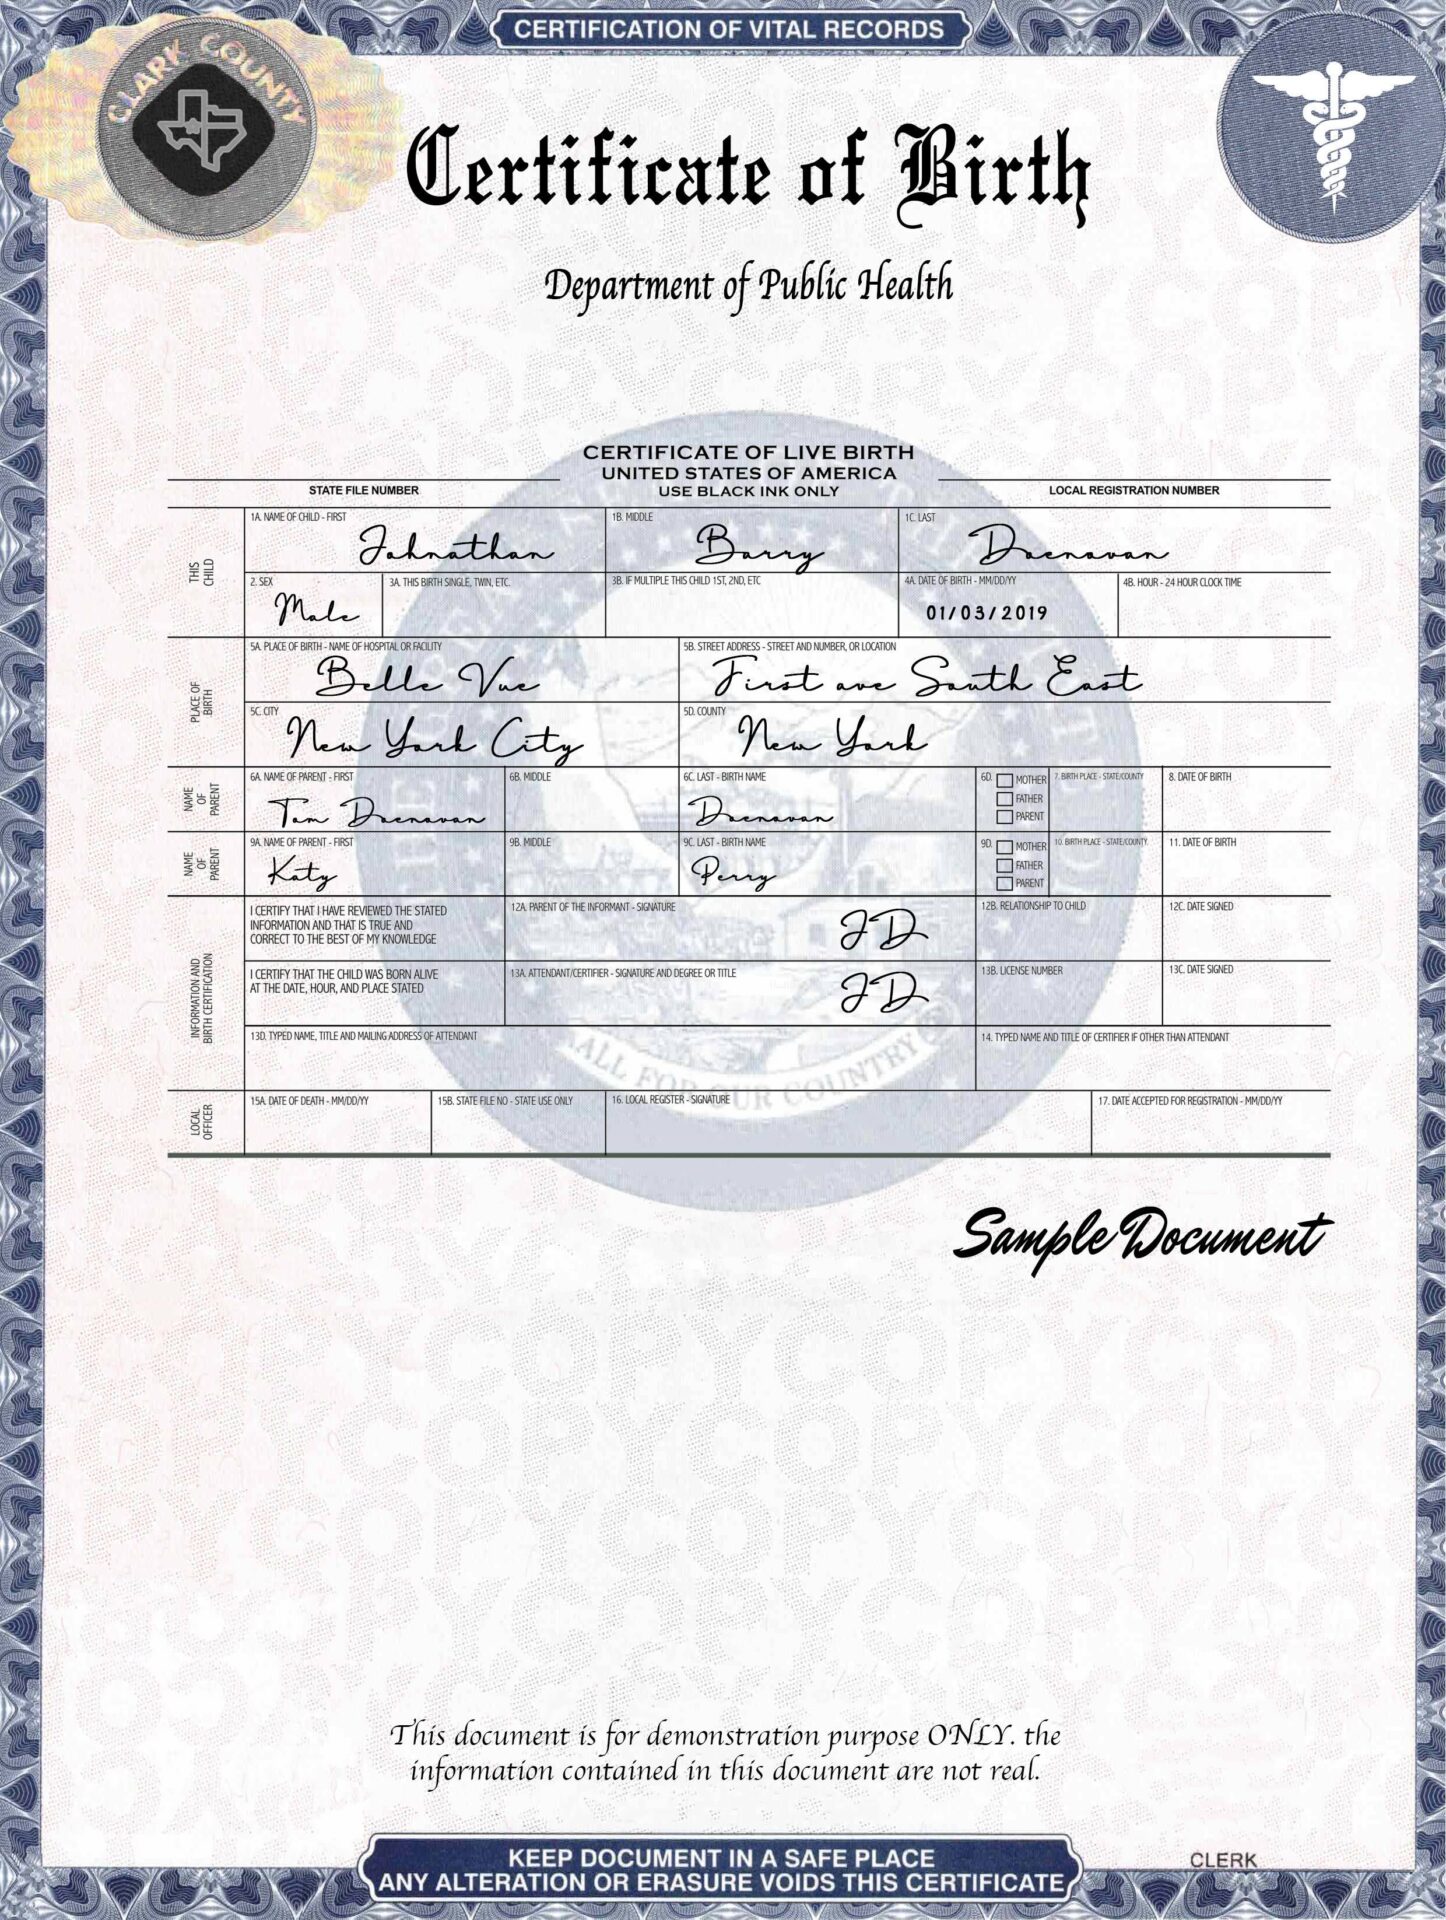 CERTIFICATION OF VITAL RECORDS
CLARK COUNTY
Certificate of Birth
Department of Public Health
CERTIFICATE OF LIVE BIRTH
UNITED STATES OF AMERICA
USE BLACK INK ONLY
STATE FILE NUMBER
LOCAL REGISTRATION NUMBER
THIS CHILD
1A. NAME OF CHILD - FIRST
Johnathan
1B. MIDDLE
Barry
1C. LAST
Doenovan
2. SEX
Male
3A. THIS BIRTH SINGLE, TWIN, ETC.
3B. IF MULTIPLE THIS CHILD 1ST, 2ND, ETC
4A. DATE OF BIRTH - MM/DD/YY
01/03/2019
4B. HOUR - 24 HOUR CLOCK TIME
PLACE OF BIRTH
5A. PLACE OF BIRTH - NAME OF HOSPITAL OR FACILITY
Belle Vue
5B. STREET ADDRESS - STREET AND NUMBER, OR LOCATION
First ave South East
5C. CITY
New York City
5D. COUNTY
New York
NAME OF PARENT
6A. NAME OF PARENT - FIRST
Tom Doenovan
6B. MIDDLE
6C. LAST - BIRTH NAME
Doenovan
6D. MOTHER
FATHER
PARENT
7. BIRTH PLACE - STATE/COUNTY
8. DATE OF BIRTH
NAME OF PARENT
9A. NAME OF PARENT - FIRST
Katy
9B. MIDDLE
9C. LAST - BIRTH NAME
Perry
9D. MOTHER
FATHER
PARENT
10. BIRTH PLACE - STATE/COUNTY
11. DATE OF BIRTH
INFORMATION AND BIRTH CERTIFICATION
I CERTIFY THAT I HAVE REVIEWED THE STATED
INFORMATION AND THAT IS TRUE AND
CORRECT TO THE BEST OF MY KNOWLEDGE
12A. PARENT OF THE INFORMANT - SIGNATURE
JD
12B. RELATIONSHIP TO CHILD
12C. DATE SIGNED
I CERTIFY THAT THE CHILD WAS BORN ALIVE
AT THE DATE, HOUR, AND PLACE STATED
13A. ATTENDANT/CERTIFIER - SIGNATURE AND DEGREE OR TITLE
JD
13B. LICENSE NUMBER
13C. DATE SIGNED
13D. TYPED NAME, TITLE AND MAILING ADDRESS OF ATTENDANT
14. TYPED NAME AND TITLE OF CERTIFIER IF OTHER THAN ATTENDANT
ALL FOR OUR COUNTRY
LOCAL OFFICER
15A. DATE OF DEATH - MM/DD/YY
15B. STATE FILE NO - STATE USE ONLY
16. LOCAL REGISTER - SIGNATURE
17. DATE ACCEPTED FOR REGISTRATION - MM/DD/YY
Sample Document
This document is for demonstration purpose ONLY. the
information contained in this document are not real.
KEEP DOCUMENT IN A SAFE PLACE
ANY ALTERATION OR ERASURE VOIDS THIS CERTIFICATE
CLERK